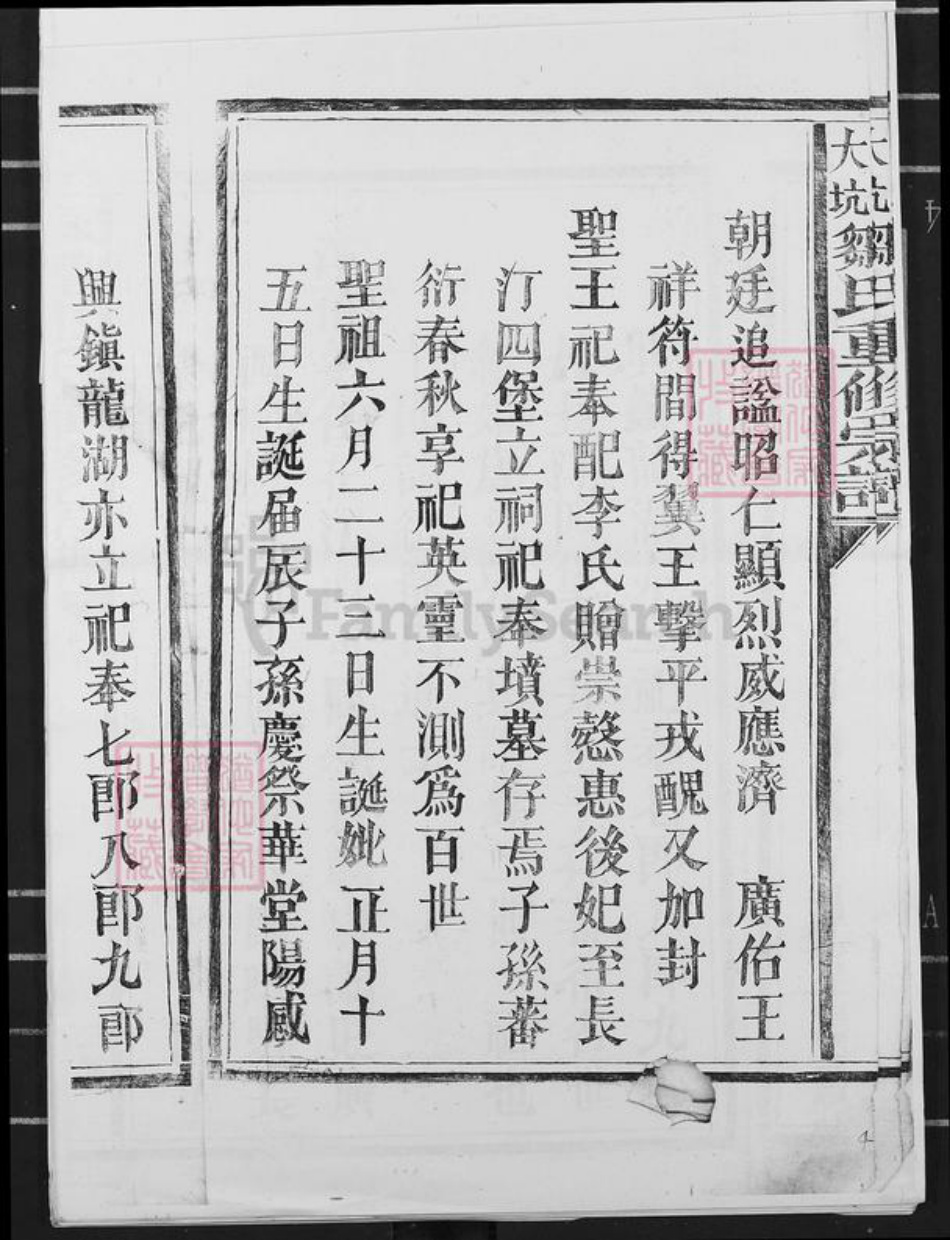 大坑鄒氏重修宗譜
朝廷追謚昭仁顯烈威應濟 廣佑王
祥符間得冀王擊平戎醜又加封
聖王祀奉配李氏贈崇慈惠後妃至長
汀四堡立祠祀奉墳墓存焉子孫蕃
衍春秋享祀英靈不測為百世
聖祖六月二十三日生誕妣正月十
五日生誕届辰子孫慶祭華堂陽感
興鎮龍湖亦立祀奉七郎八郎九郎
FamilySearch